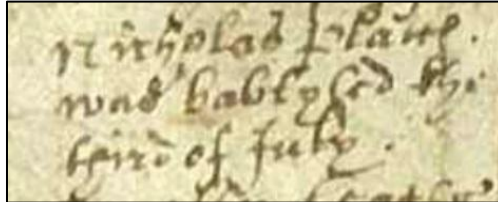 Nicholas
was bablysed the
third of July.